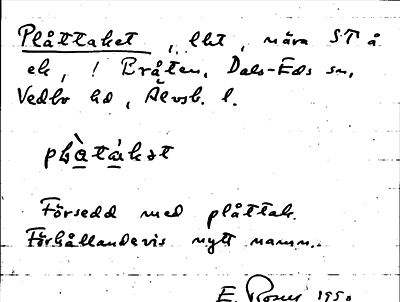 Plåttaket, lht, nära ST å
ek, ! Bråten, Dals-Eds sn,
Vedbo hd, Älvsb. l.
Försedd med plåttak.
Förhållandevis nytt namn.
E. 1950